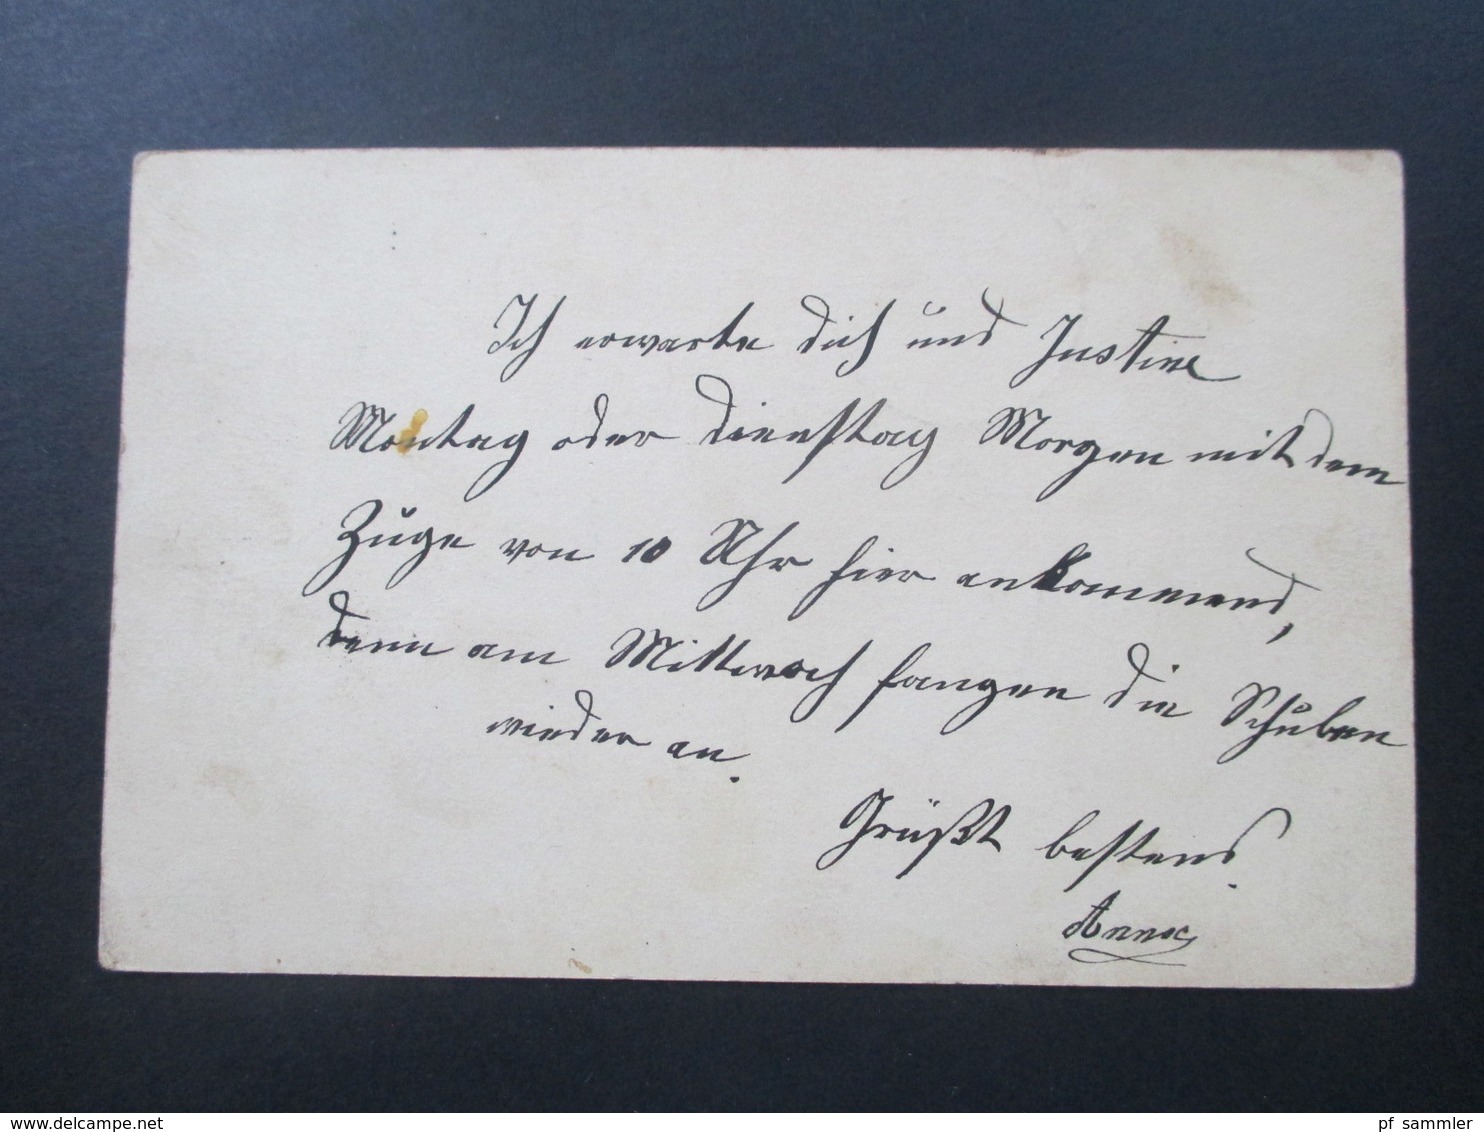 Ich erwarte dich und Justine
Montag oder dienstag Morgen mit dem
Zuge von 10 Uhr hier ankommend,
denn am Mittwoch fangen die Schulen
wieder an.
Grüßt bestens.
Anna
delcampe.net
pf_sammler